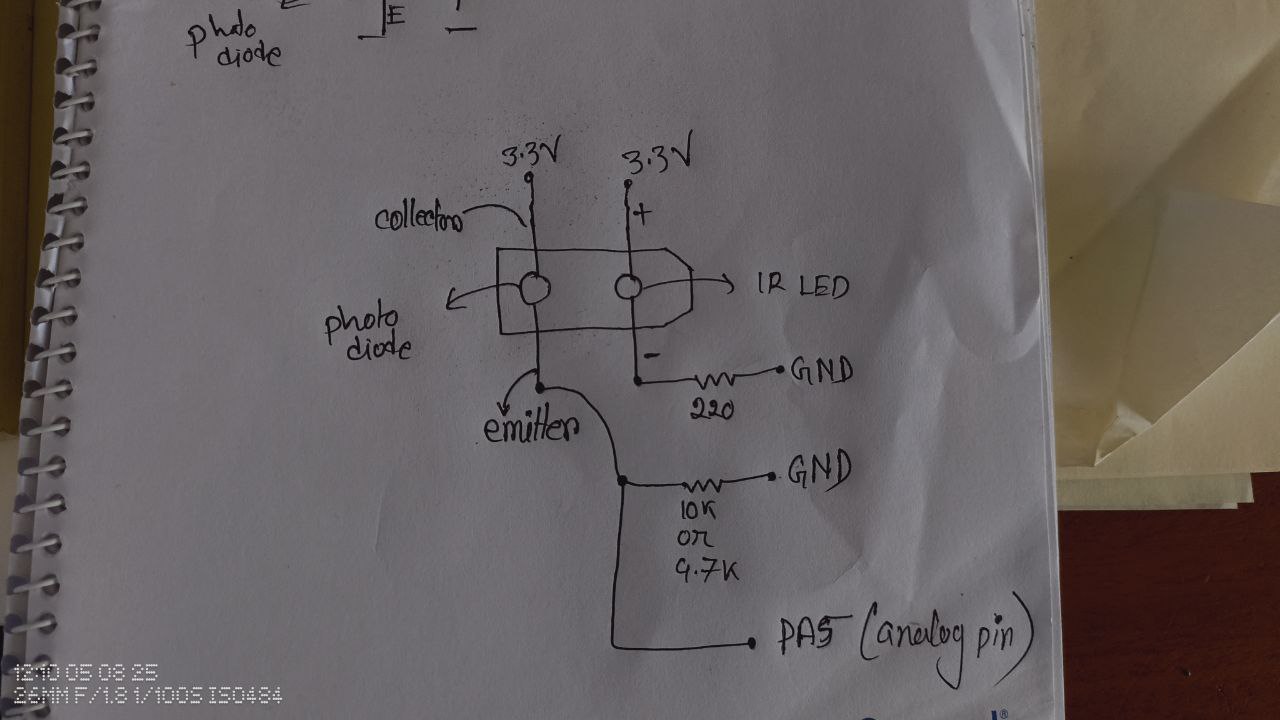 E
photo
diode
3.3V
3.3V
collector
+
IR LED
photo
diode
-
GND
220
emitter
GND
10K
or
4.7K
PA5 (analog pin)
12:10 05 08 25
26MM F/1.8 1/100S ISO484